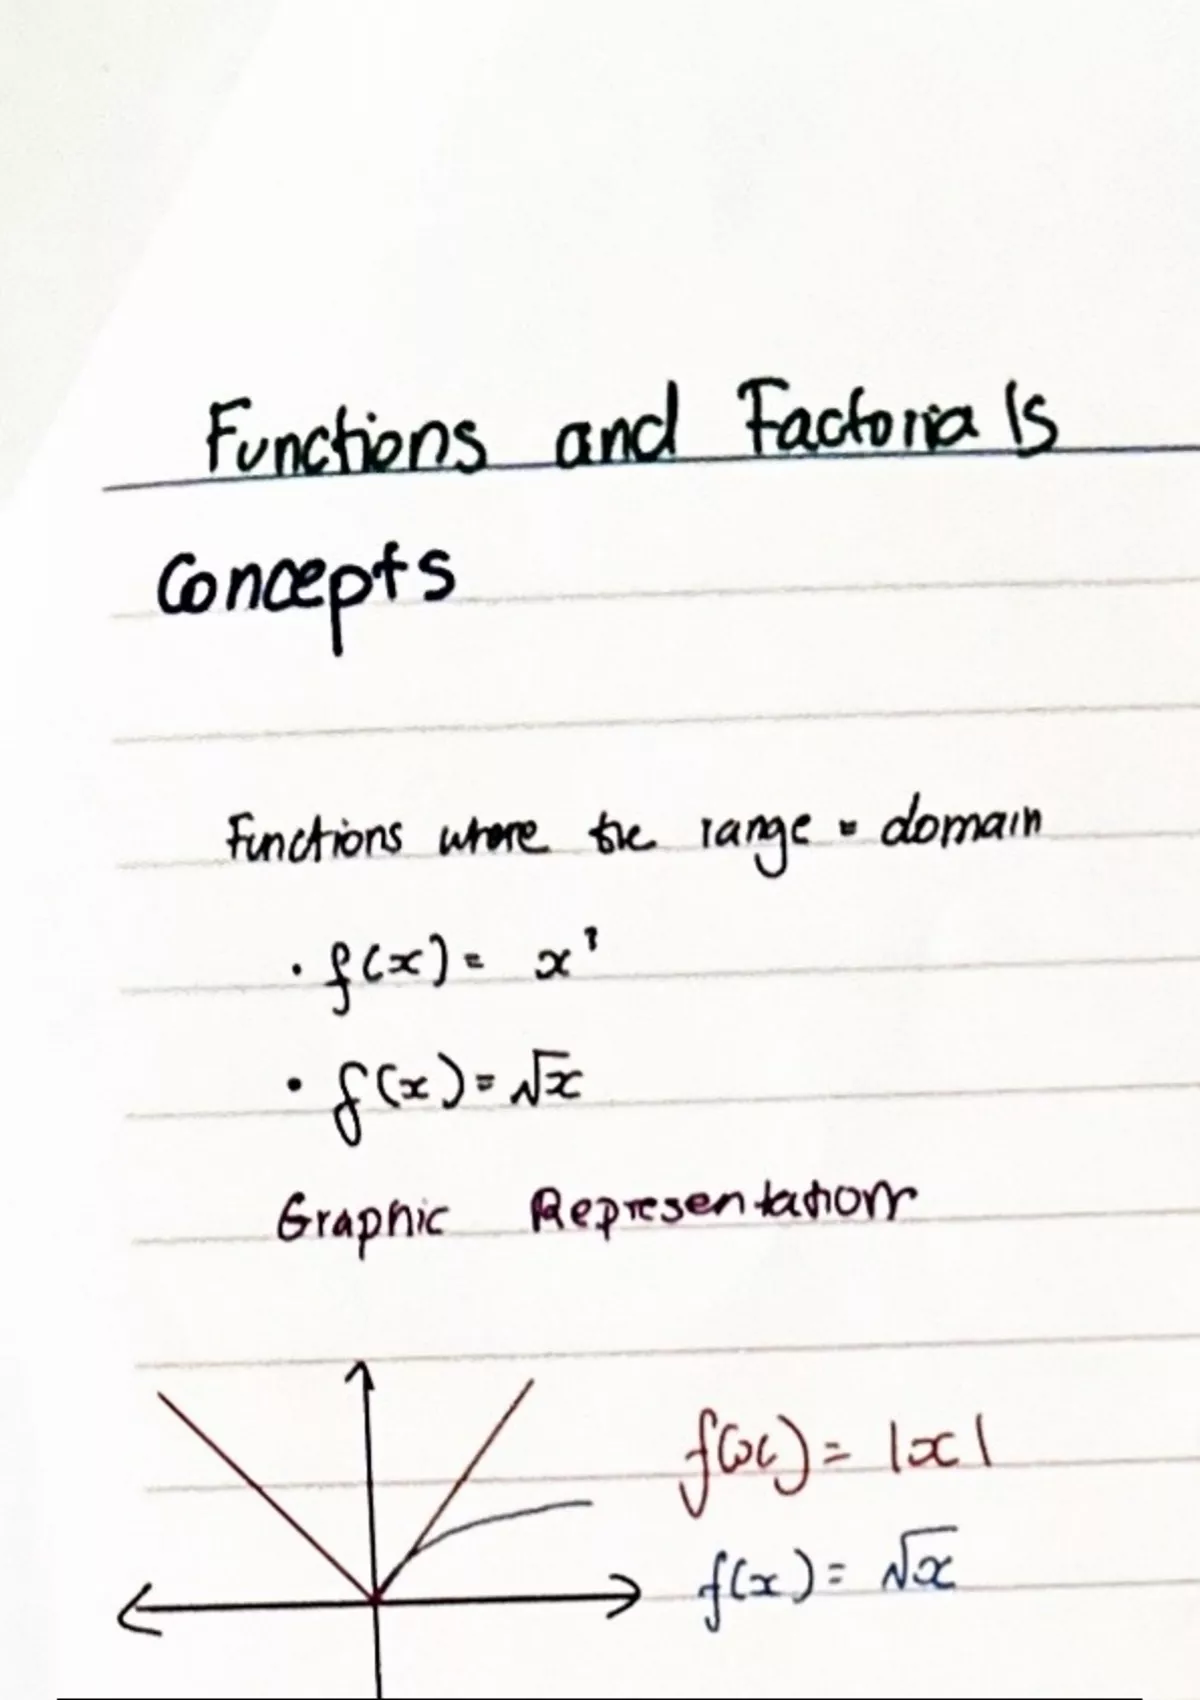 Functions and Factorials
Concepts
Functions where the range = domain
• f(x) = x³
• f(x) = √x
Graphic Representation
f(x) = |x|
f(x) = √x